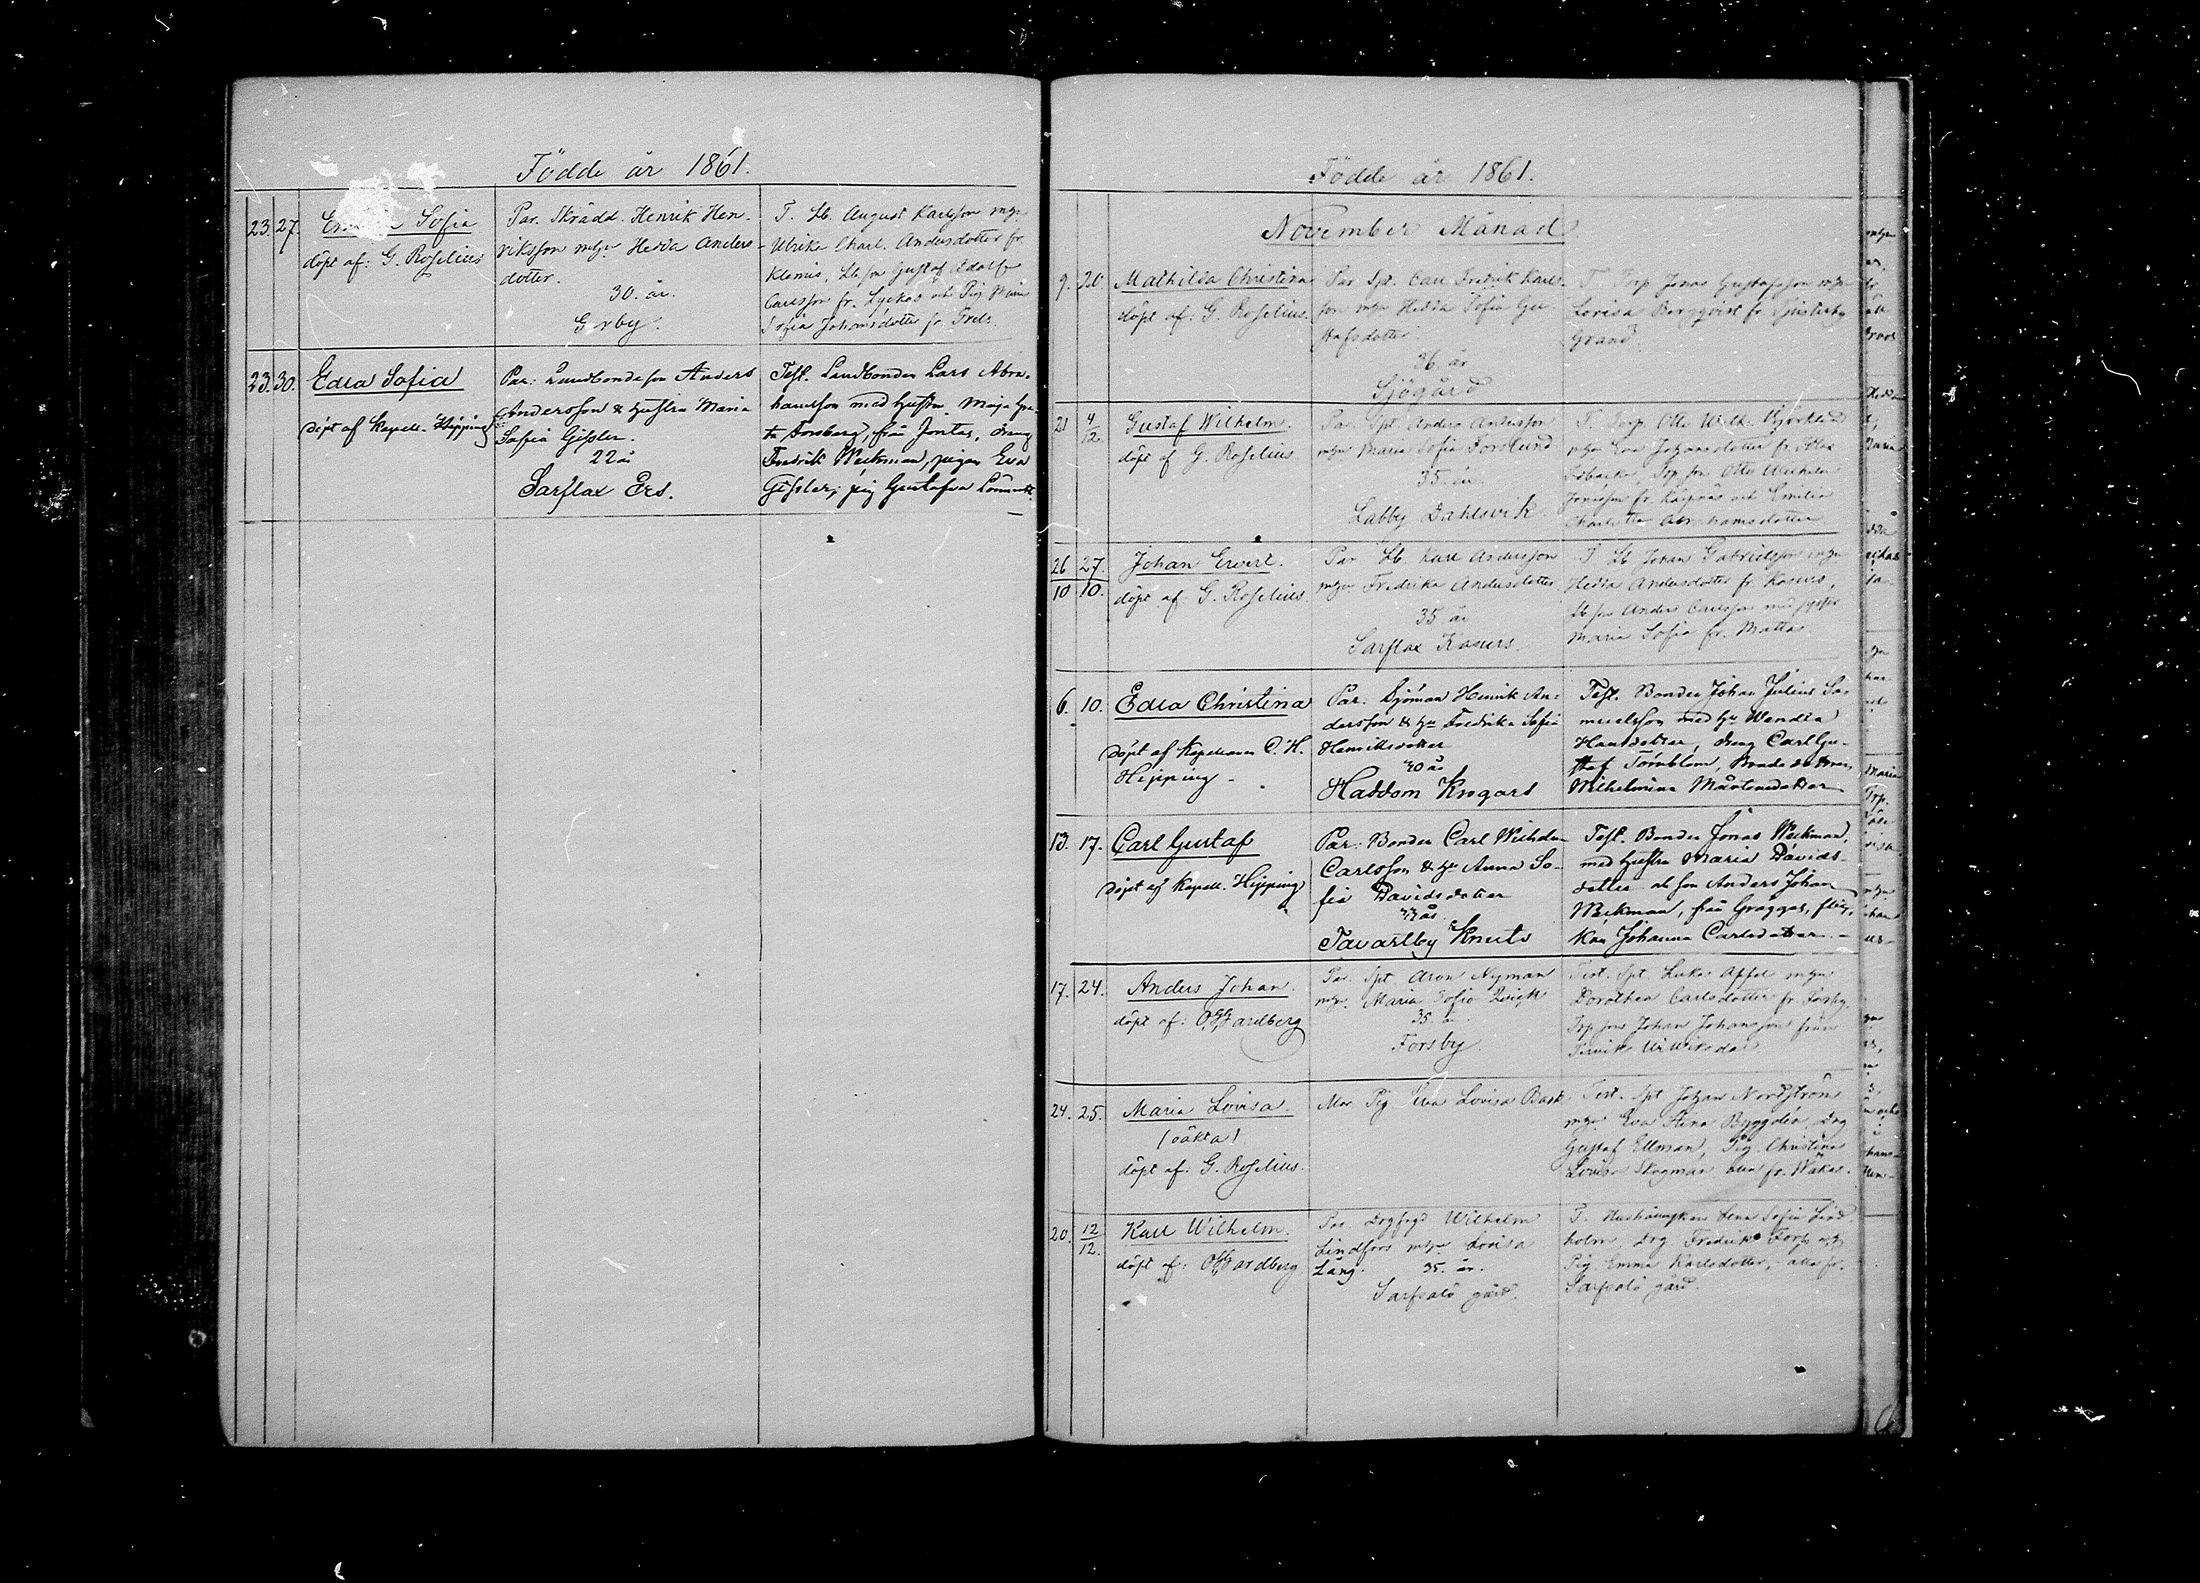 Födde år 1861.
23. 27. Sofia
döpt af: G. Roselius
Par. Skrädd. Henrik Hen-
riksson m hu Hedda Anders-
dotter.
30. år.
Gerby.
T. Lb. August Karlsson m hu
Ulrika Charl. Andersdotter fr.
Klemis, Lb. son Gustaf Adolf
Carlsson fr. Lyckas och Pig
Sofia Johansdotter fr.
23. 30. Edla Sofia
döpt af Kapell. Hipping
Par: Landbondeson Anders
Andersson & hustru Maria
Sofia Gisler.
22 år
Sarflax Ers.
Test. Landbonden Lars Abra-
hamsson med hustru Maja Gre-
ta Forsberg, från Jontas, dreng
Fredrik Weckman, pigan Eva
Gisler, pig Gustafva
Födde år 1861.
November Månad
9. 20. Mathilda Christina
döpt af: G. Roselius.
Par Spt. Carl Fredrik Karls-
son m hu Hedda Sofia Gu-
stafsdotter.
36. år
Sjögård
T. Torp Jonas Gustafsson m hu
Lovisa Bergqvist fr
Strand.
21 4/12. Gustaf Wilhelm.
döpt af G. Roselius
Par. Spt. Anders Andersson
m hu Maria Sofia Forslund
35. år.
Labby Dahlsvik.
T. Torp. Otto Wilh. Björklund
m hu Eva Johansdotter fr.
Torp. son Otto Wilhelm
fr. och Emilia
Charlotta Abrahamsdotter
26/10 27./10. Johan Evert.
döpt af G. Roselius.
Par Lb. Karl Andersson
m hu Fredrika Andersdotter
35. år
Sarflax Kasurs.
T Lb Johan Gabrielsson m hu
Hedda Andersdotter fr Kasurs,
Lb son Anders Carlsson med syster
Maria Sofia fr. Matts
6. 10. Edla Christina
döpt af Kapellanen C. H.
Hipping.
Par. Sjöman Henrik An-
dersson & hu Fredrika Sofia
Henriksdotter
40 år
Haddom Krogars
Test. Bonden Johan Julius Sa-
muelsson med hu Wendla
Hansdotter, dreng Carl Gu-
staf Törnblom, Bondedottren
Wilhelmina Mårtensdotter
13. 17. Carl Gustaf
döpt af Kapell. Hipping
Par: Bonden Carl Wilhelm
Carlsson & hu Anna So-
fia Davidsdotter
år.
Tavastby Knuts
Test. Bonden Jonas Weckman,
med hustru Maria Davids-
dotter, son Anders Johan
Weckman, från Graggas, flic-
kan Johanna Carlsdotter.
17. 24. Anders Johan.
döpt af: Gardberg
Par. Spt Aron Nyman
m hu. Maria Sofia
35. år.
Forsby.
Test. Spt. Lukas Appel m hu
Dorothea Carlsdotter fr Forsby.
Torp son Johan Johansson från
24. 25. Maria Lovisa
(oäkta)
döpt af: G. Roselius.
Mor Pig Eva Lovisa Bask
Test. Spt Johan Nordström
m hu Eva Stina Byggdén, Drg
Gustaf Ellman, Pig Christina
Lovisa Skogman alla fr.
20. 12/12. Karl Wilhelm.
döpt af: Gardberg
Par Drgfogd Wilhelm
Lindfors m hu Lovisa
Lång. 35. år.
Sarfsalö gård.
T. Hushållerskan Lena Sofia Lind-
holm, Drg Fredrik
Pig Emma Karlsdotter, alla fr.
Sarfsalö gård.